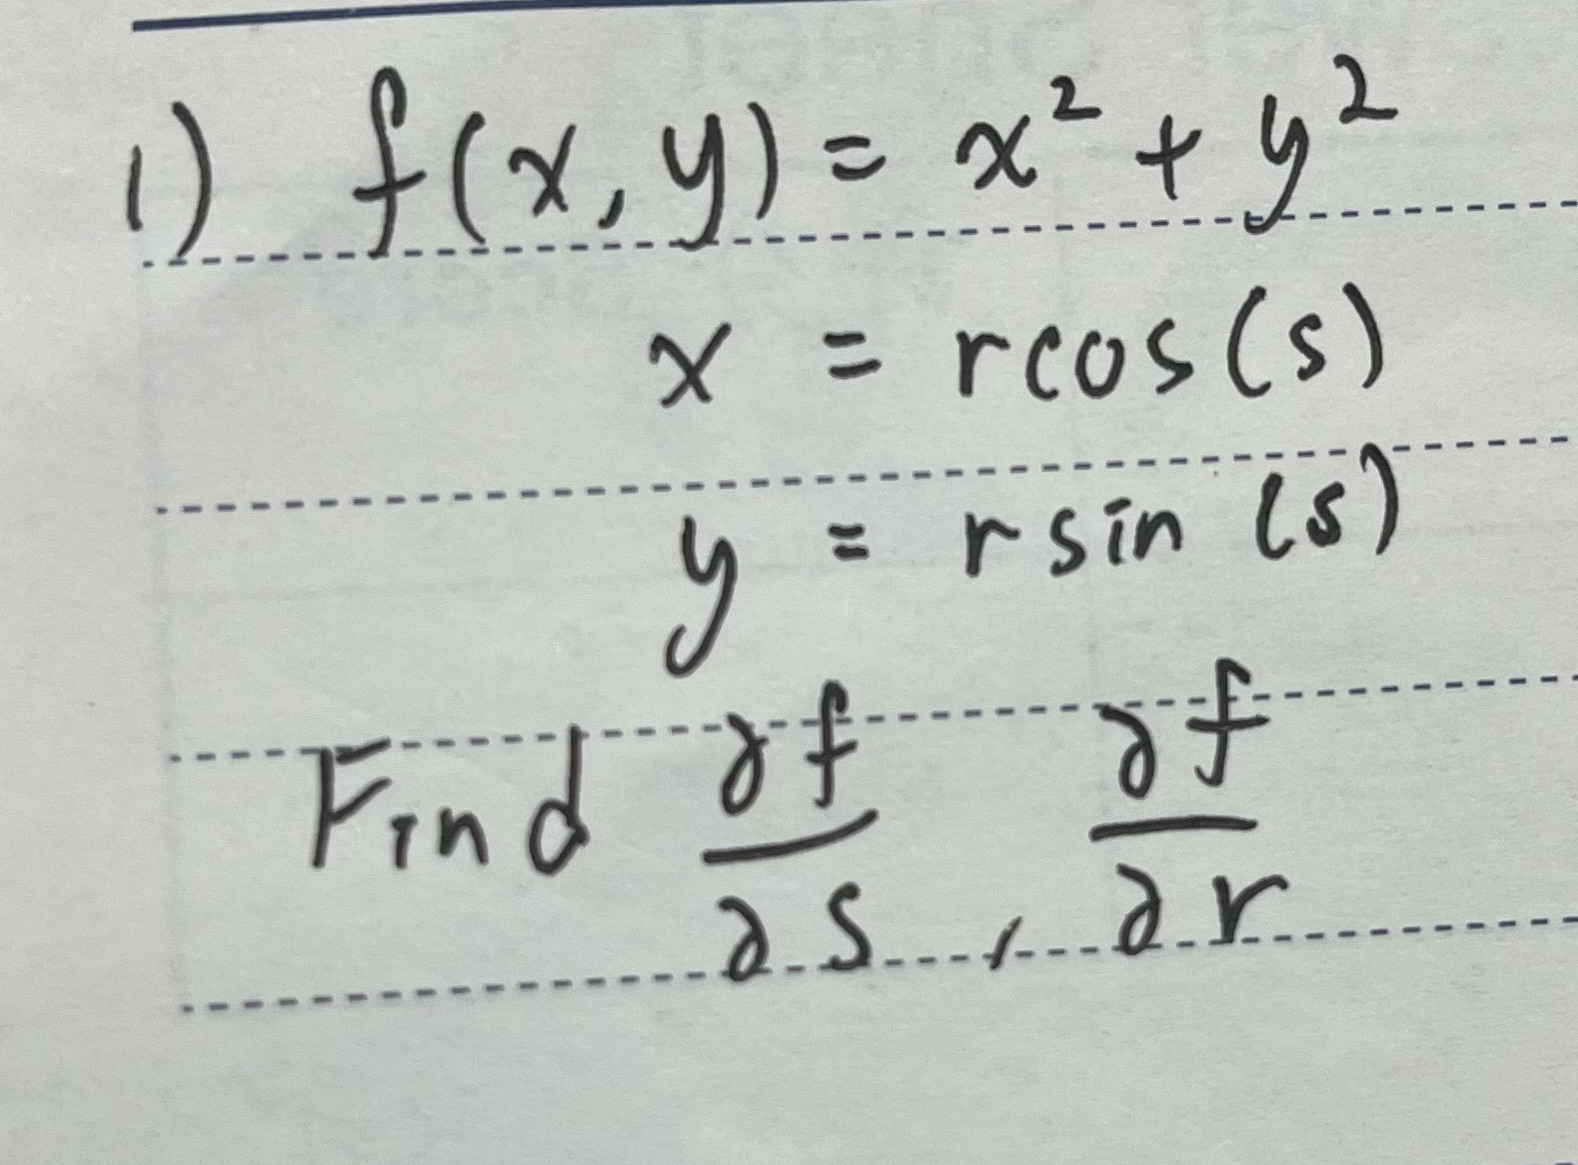 1) f(x, y) = x² + y²
x = rcos(s)
y = rsin(s)
Find ∂f/∂s, ∂f/∂r